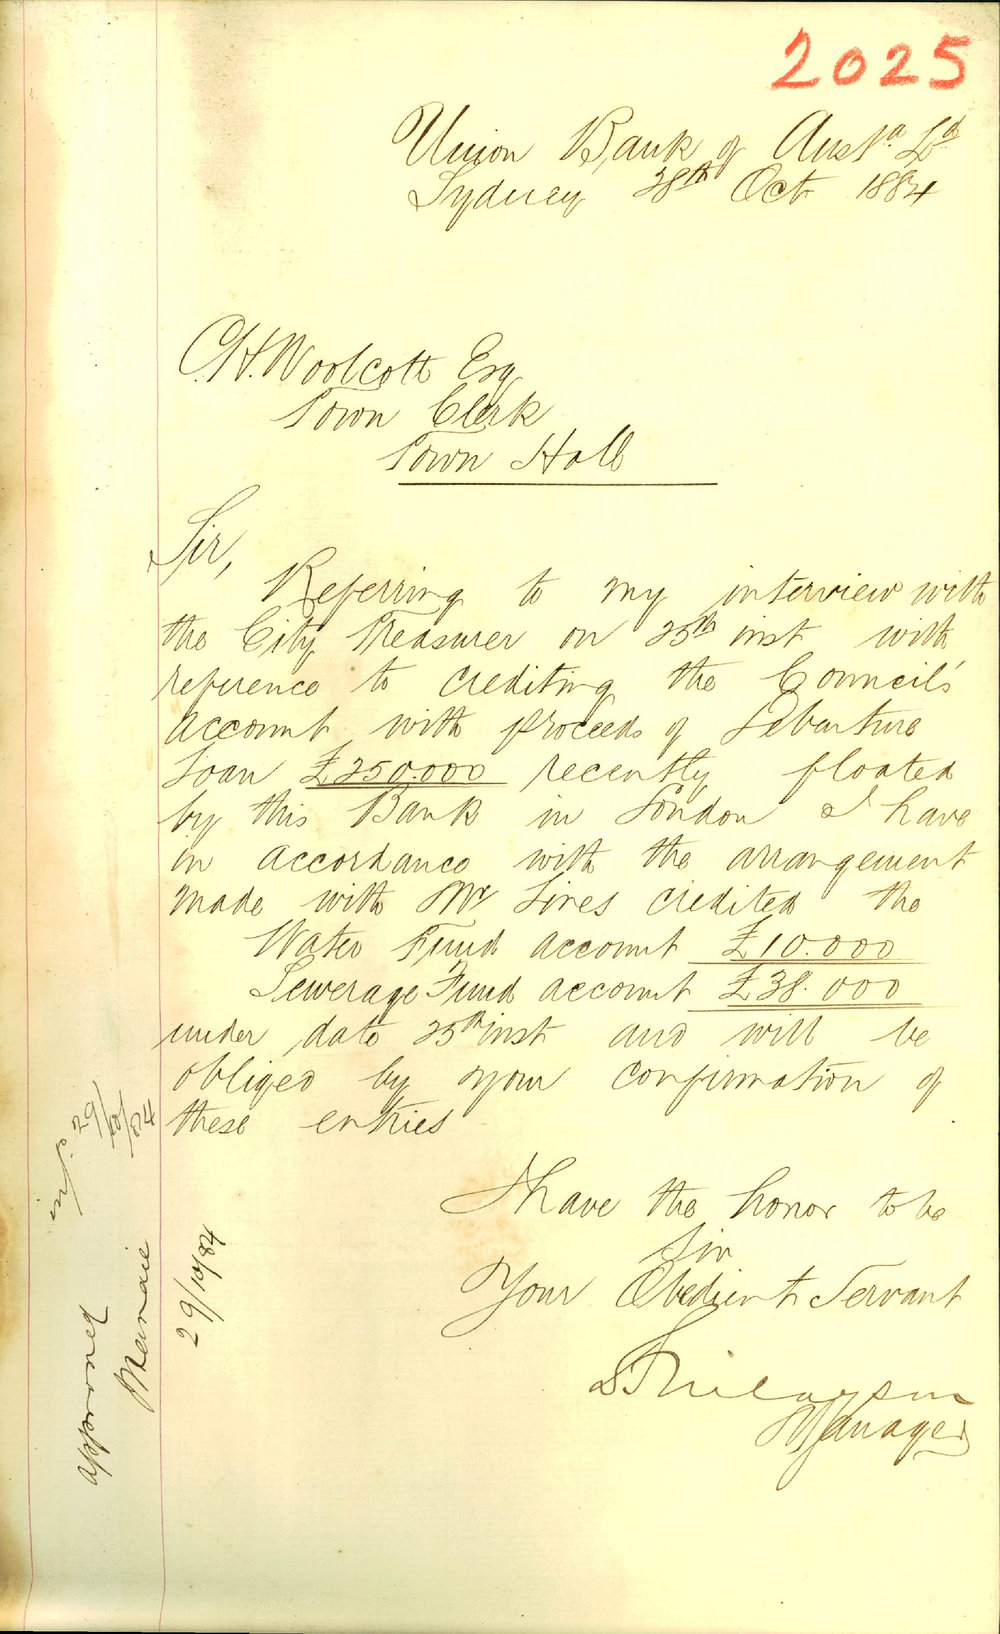 2025
Union Bank of Austa. Ld
Sydney 28th Oct 1884
C.H. Woolcott Esq
Town Clerk
Town Hall
Sir,
Referring to my interview with
the City Treasurer on 25th inst with
reference to crediting the Council's
account with proceeds of Debenture
Loan £250.000 recently floated
by this Bank in London I have
in accordance with the arrangement
made with Mr Lines credited the
Water Fund account £10.000
Sewerage Fund account £38.000
under date 25th inst and will be
obliged by your confirmation of
these entries
I have the honor to be
Sir
Your Obedient Servant
Manager
29/10/84
approved
29/10/84